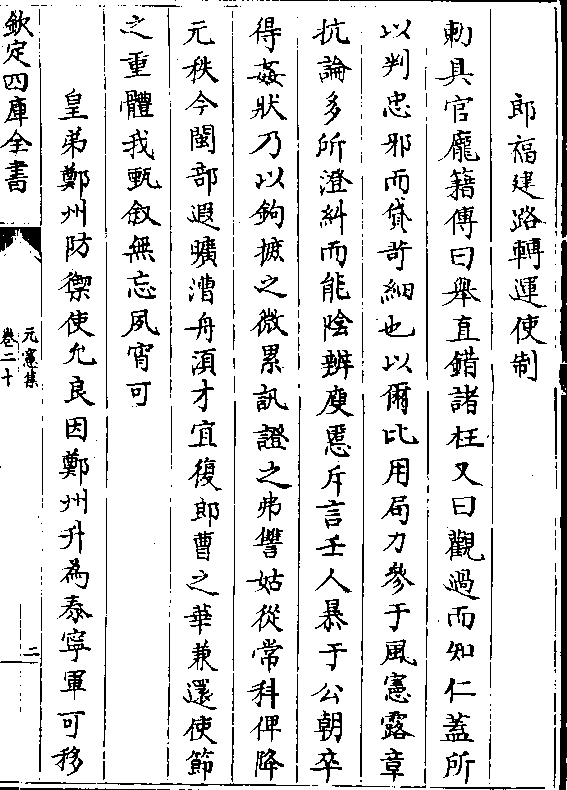 郎福建路轉運使制
勅具官龐籍傳曰舉直錯諸枉又曰觀過而知仁蓋所
以判忠邪而貸苛細也以爾比用局力參于風憲露章
抗論多所澄糾而能陰辨廋慝斥言壬人暴于公朝卒
得姦狀乃以鉤摭之微累訊證之弗讐姑從常科俾降
元秩今閩部遐曠漕舟湏才宜復郎曹之華兼還使節
之重體我甄叙無忘夙宵可
皇弟鄭州防禦使允良因鄭州升為奉寧軍可移
欽定四庫全書
元憲集
卷二十
二